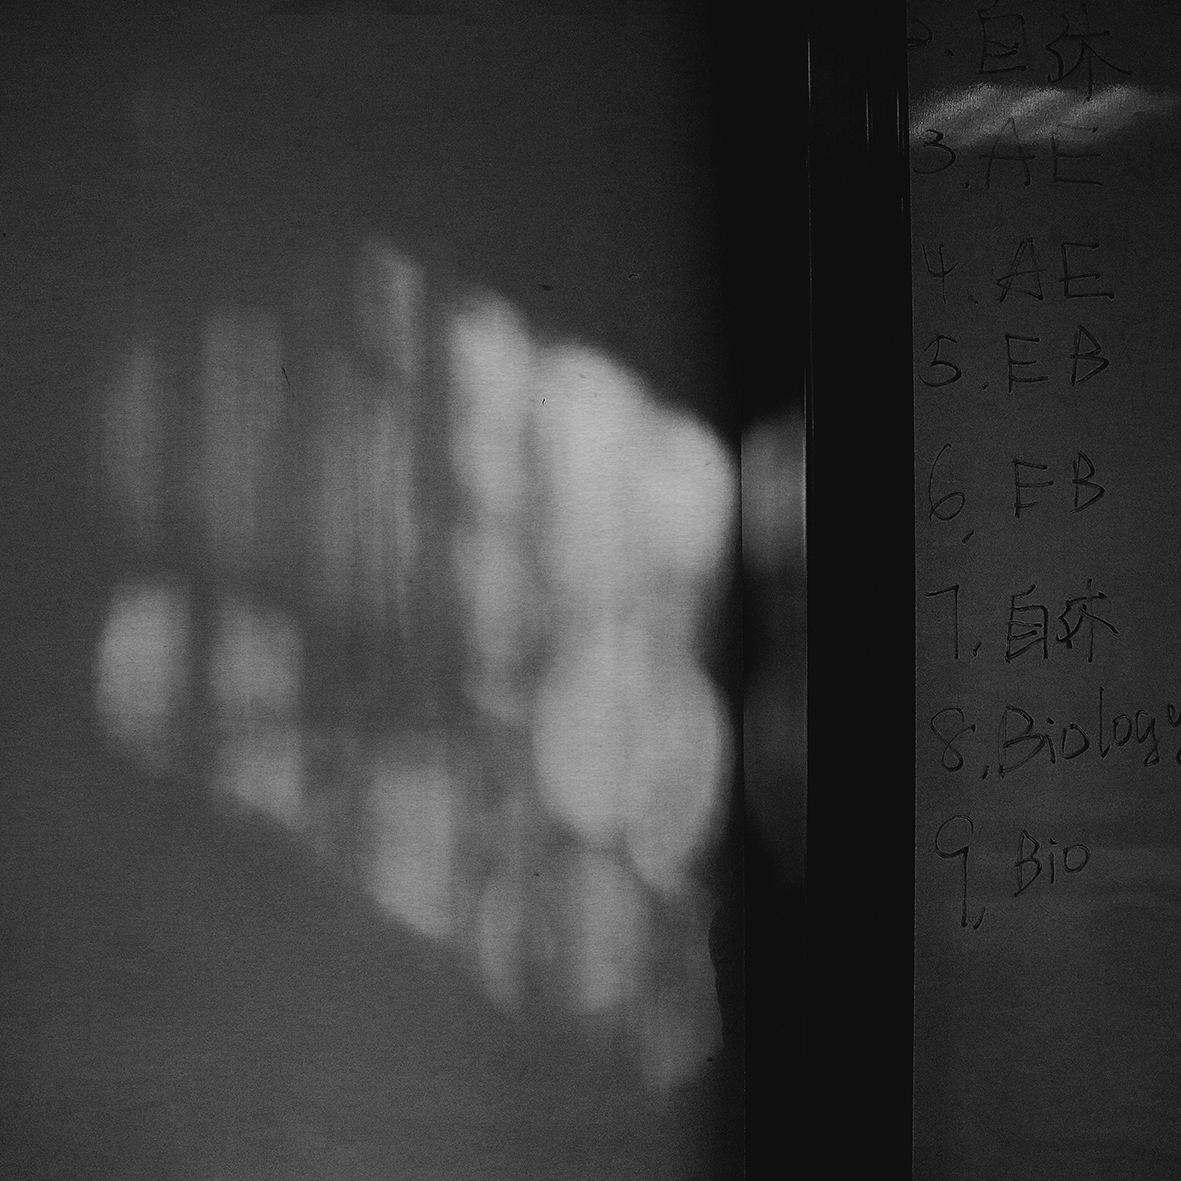 2. 自休
3. AE
4. AE
5. EB
6. EB
7. 自休
8. Biology
9. Bio